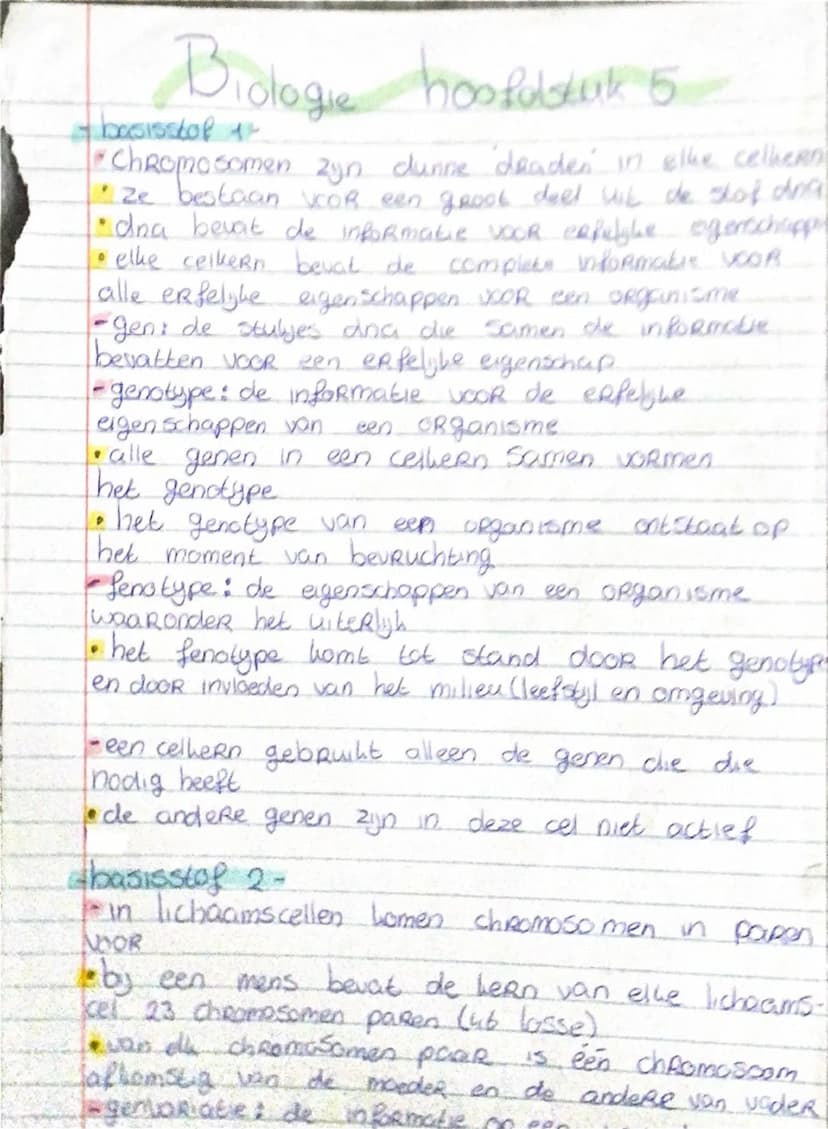 Biologie hoofdstuk 5
-basisstof 1-
- Chromosomen zijn dunne 'draden' in elke celkern
• ze bestaan voor een groot deel uit de stof dna
• dna bevat de informatie voor erfelijke eigenschappe
• elke celkern bevat de complete informatie voor
alle erfelijke eigenschappen voor een organisme
- gen: de stukjes dna die samen de informatie
bevatten voor een erfelijke eigenschap
- genotype: de informatie voor de erfelijke
eigenschappen van een organisme
• alle genen in een celkern samen vormen
het genotype
• het genotype van een organisme ontstaat op
het moment van bevruchting
- fenotype: de eigenschappen van een organisme
waaronder het uiterlijk
• het fenotype komt tot stand door het genotyp
en door invloeden van het milieu (leefstijl en omgeving)
- een celkern gebruikt alleen de genen die die
nodig heeft
• de andere genen zijn in deze cel niet actief
-basisstof 2-
- in lichaamscellen komen chromosomen in paren
voor
• bij een mens bevat de kern van elke lichaams-
cel 23 chromosomen paren (46 losse)
• van elk chromosomen paar is één chromosoom
afkomstig van de moeder en de andere van vader
- genvariatie: de informatie op een